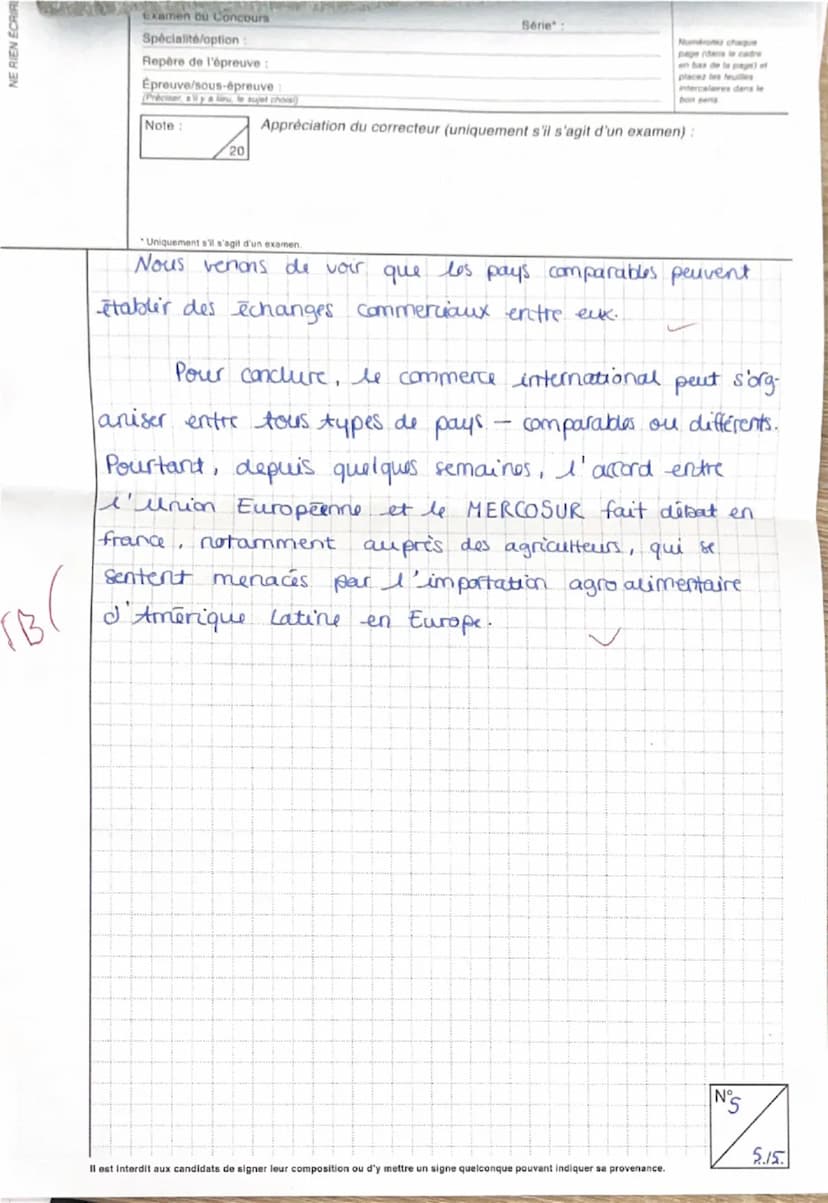 NE RIEN ÉCRIRE
Examen ou Concours
Série* :
Spécialité/option :
Repère de l'épreuve :
Épreuve/sous-épreuve :
(Préciser, s'il y a lieu, le sujet choisi)
Numérotez chaque
page (dans le cadre
en bas de la page) et
placez les feuilles
intercalaires dans le
bon sens
Note :
20
Appréciation du correcteur (uniquement s'il s'agit d'un examen) :
* Uniquement s'il s'agit d'un examen.
Nous venons de voir que les pays comparables peuvent
établir des échanges commerciaux entre eux.
Pour conclure, le commerce international peut s'org-
aniser entre tous types de pays – comparables ou différents.
Pourtant, depuis quelques semaines, l'accord entre
l'Union Européenne et le MERCOSUR fait débat en
france, notamment auprès des agriculteurs, qui se
sentent menacés par l'importation agroalimentaire
d'Amérique Latine en Europe.
TB
N°5
5./5.
Il est interdit aux candidats de signer leur composition ou d'y mettre un signe quelconque pouvant indiquer sa provenance.